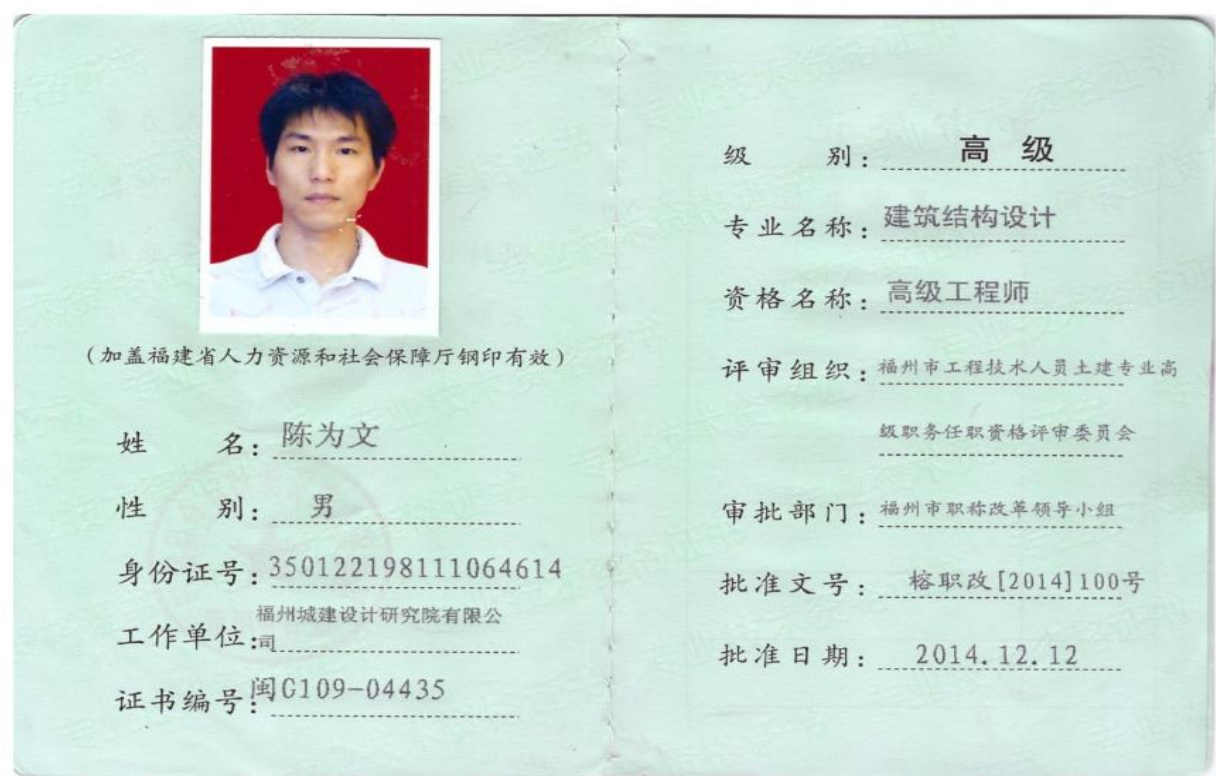 （加盖福建省人力资源和社会保障厅钢印有效）
姓 名：陈为文
性 别：男
身份证号：350122198111064614
工作单位：福州城建设计研究院有限公
司
证书编号：闽G109-04435
级 别：高 级
专业名称：建筑结构设计
资格名称：高级工程师
评审组织：福州市工程技术人员土建专业高
级职务任职资格评审委员会
审批部门：福州市职称改革领导小组
批准文号：榕职改[2014]100号
批准日期：2014.12.12